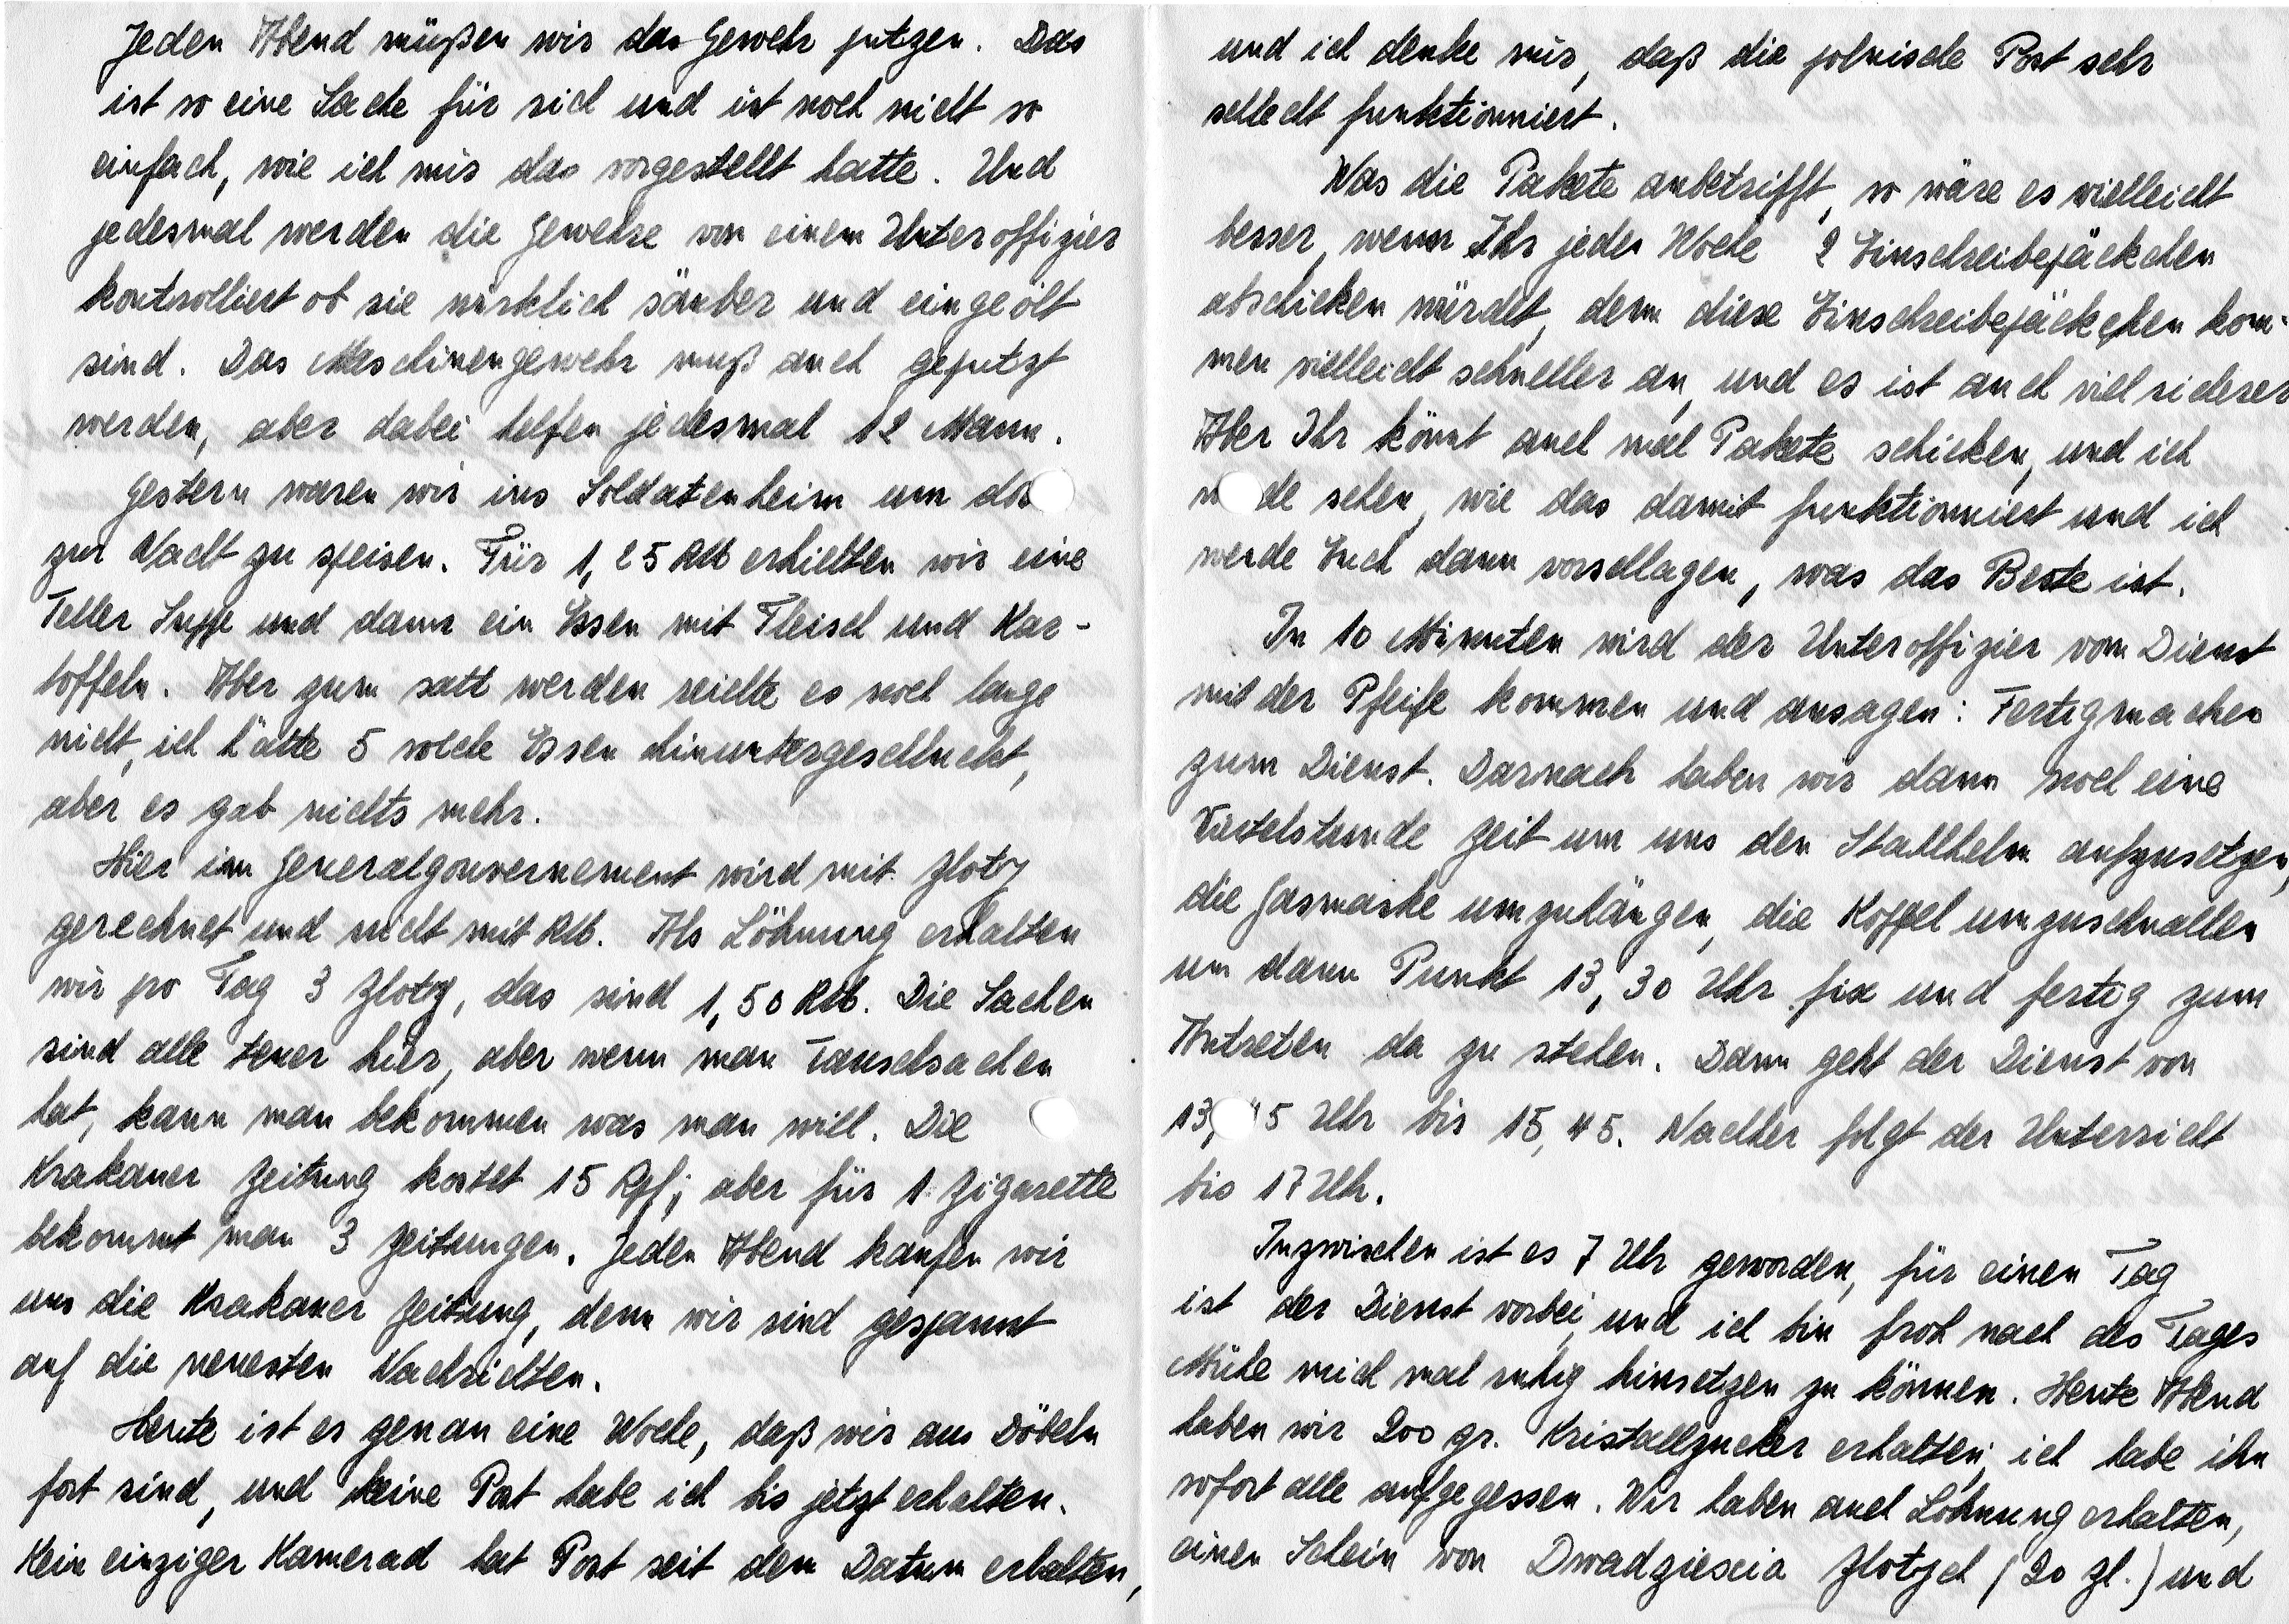 Jeden Abend müßen wir das Gewehr putzen. Das
ist so eine Sache für sich und ist noch nicht so
einfach, wie ich mir das vorgestellt hatte. Und
jedesmal werden die Gewehre von einem Unteroffizier
kontrolliert ob sie wirklich säuber und eingeölt
sind. Das Maschinengewehr muß auch geputzt
werden, aber dabei helfen jedesmal 12 Mann.
Gestern waren wir ins Soldatenheim um do
zur Nacht zu speisen. Für 1,25 RM erhielten wir eine
Teller Suppe und dann ein Essen mit Fleisch und Kar-
toffeln. Aber zum satt werden reichte es noch lange
nicht, ich hätte 5 solche Essen hinuntergeschluckt,
aber es gab nichts mehr.
Hier im Generalgouvernement wird mit Zloty
gerechnet und nicht mit RM. Als Löhnung erhalten
wir pro Tag 3 Zloty, das sind 1,50 RM. Die Sachen
sind alle teuer hier, aber wenn man Tauschsachen
hat, kann man bekommen was man will. Die
Krakauer Zeitung kostet 15 Rpf; aber für 1 Zigarette
bekommt man 3 Zeitungen. Jeden Abend kaufen wir
uns die Krakauer Zeitung, denn wir sind gespannt
auf die neuesten Nachrichten.
Heute ist es genau eine Woche, daß wir aus Döbeln
fort sind, und keine Post habe ich bis jetzt erhalten.
Kein einziger Kamerad hat Post seit dem Datum erhalten,
und ich denke mir, daß die polnische Post sehr
schlecht funktionniert.
Was die Pakete anbetrifft, so wäre es vielleicht
besser, wenn Ihr jeden Woche 2 Einschreibepäckchen
abschicken würdet, denn diese Einschreibepäckchen kom-
men vielleicht schneller an, und es ist auch viel sicherer
Aber Ihr könnt auch mal Pakete schicken, und ich
w de sehen, wie das damit funktionniert und ich
werde Euch dann vorschlagen, was das Beste ist.
In 10 Minuten wird der Unteroffizier vom Dienst
mit der Pfeife kommen und ansagen: Fertigmachen
zum Dienst. Darnach haben wir dann noch eine
Viertelstunde Zeit um uns den Stahlhelm aufzusetzen,
die Gasmaske umzuhängen, die Koppel umzuschnallen
um dann Punkt 13,30 Uhr fix und fertig zum
Antreten da zu stehen. Dann geht der Dienst von
13, 5 Uhr bis 15,45. Nachher folgt der Unterricht
bis 17 Uhr.
Inzwischen ist es 7 Uhr geworden, für einen Tag
ist der Dienst vorbei, und ich bin froh nach des Tages
Mühe mich mal ruhig hinsetzen zu können. Heute Abend
haben wir 200 gr. Kristallzucker erhalten, ich habe ihn
sofort alle aufgegessen. Wir haben auch Löhnung erhalten,
einen Schein von Dwadziescia Zlotych (20 zl.) und